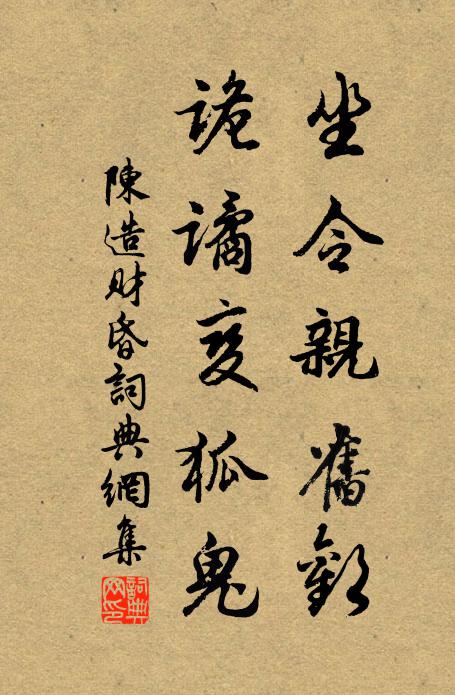 坐令親舊歡
詭譎變狐鬼
陳造財昏詞典網集
詞典網印